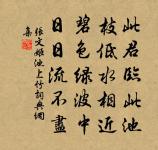 此君臨此池
枝低水相近
碧色綠波中
日日流不盡
張文姬池上竹詞典網
集